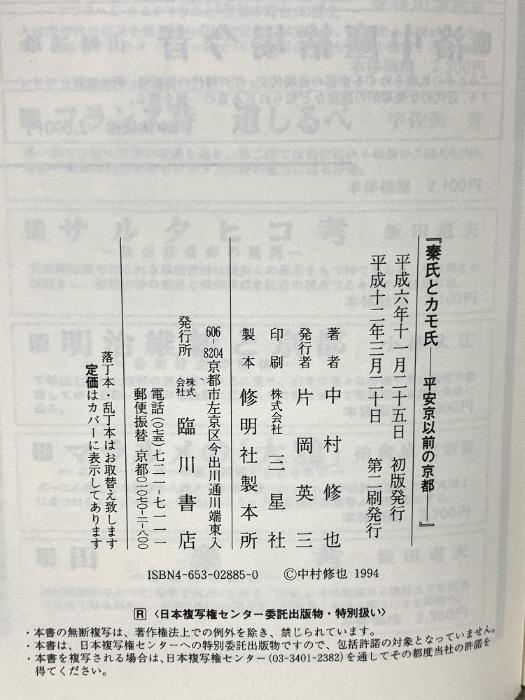 『秦氏とカモ氏――平安京以前の京都――』
平成六年十一月二十五日　初版発行
平成十二年三月二十日　第二刷発行
著者　中村修也
発行者　片岡英三
印刷　株式会社　三星社
製本　修明社製本所
606-8204京都市左京区今出川通川端東入
発行所　株式会社　臨川書店
電話(〇七五)七二一-七一一一
郵便振替　京都〇一〇七〇-二-八〇〇
落丁本・乱丁本はお取替え致します
定価はカバーに表示してあります
ISBN4-653-02885-0　©中村修也　1994
R〈日本複写権センター委託出版物・特別扱い〉
・本書の無断複写は、著作権法上での例外を除き、禁じられています。
・本書は、日本複写権センターへの特別委託出版物ですので、包括許諾の対象となっていません。
・本書を複写される場合は、日本複写権センター(03-3401-2382)を通してその都度当社の許諾を
得てください。